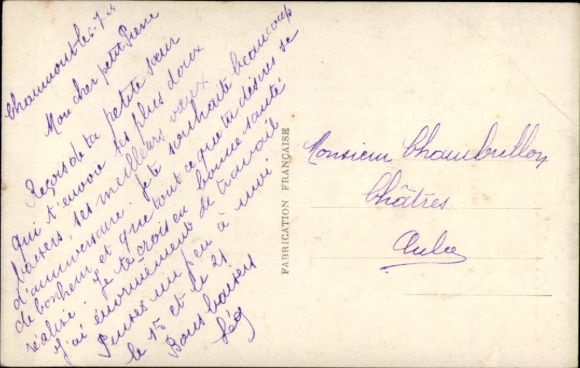 Chaumont le 7
Mon cher petit Pierre
Reçois de ta petite sœur
qui t'envoie les plus doux
baisers ses meilleurs vœux
d'anniversaire. Je te souhaite beaucoup
de bonheur et que tout ce que tu désires se
réalise. Je te crois en bonne santé
j'ai énormément de travail
Penses un peu à moi
le 15 et le 21.
Bons baisers
FABRICATION FRANÇAISE
Monsieur Chambrillon
Châtres
Aube